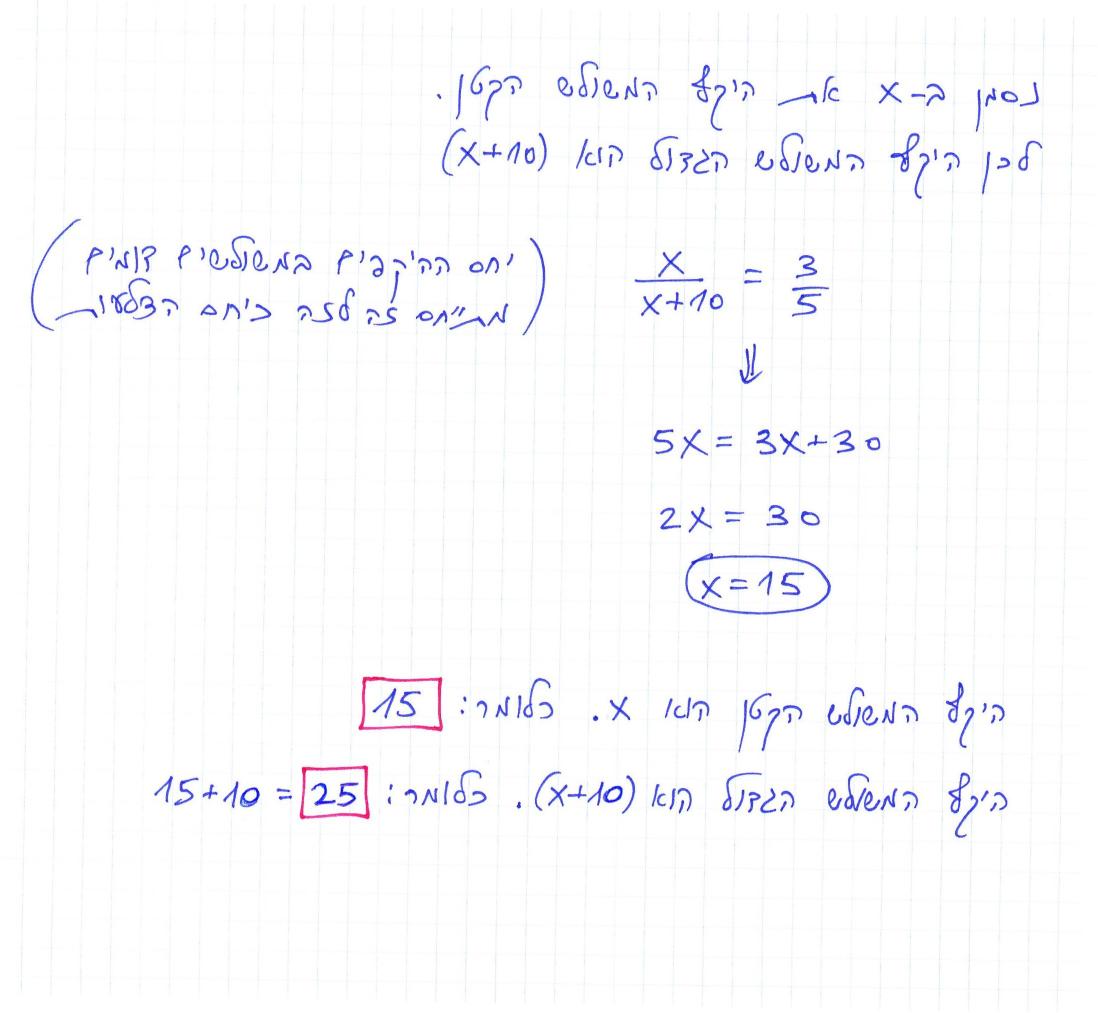 נסמן ב-x את היקף המשולש הקטן.
לכן היקף המשולש הגדול הוא (x+10)
x/(x+10) = 3/5
(יחס ההיקפים במשולשים דומים
מתייחס זה לזה כיחס הצלעות)
⇓
5x = 3x+30
2x = 30
x = 15
היקף המשולש הקטן הוא x. כלומר: 15
היקף המשולש הגדול הוא (x+10). כלומר: 15+10 = 25